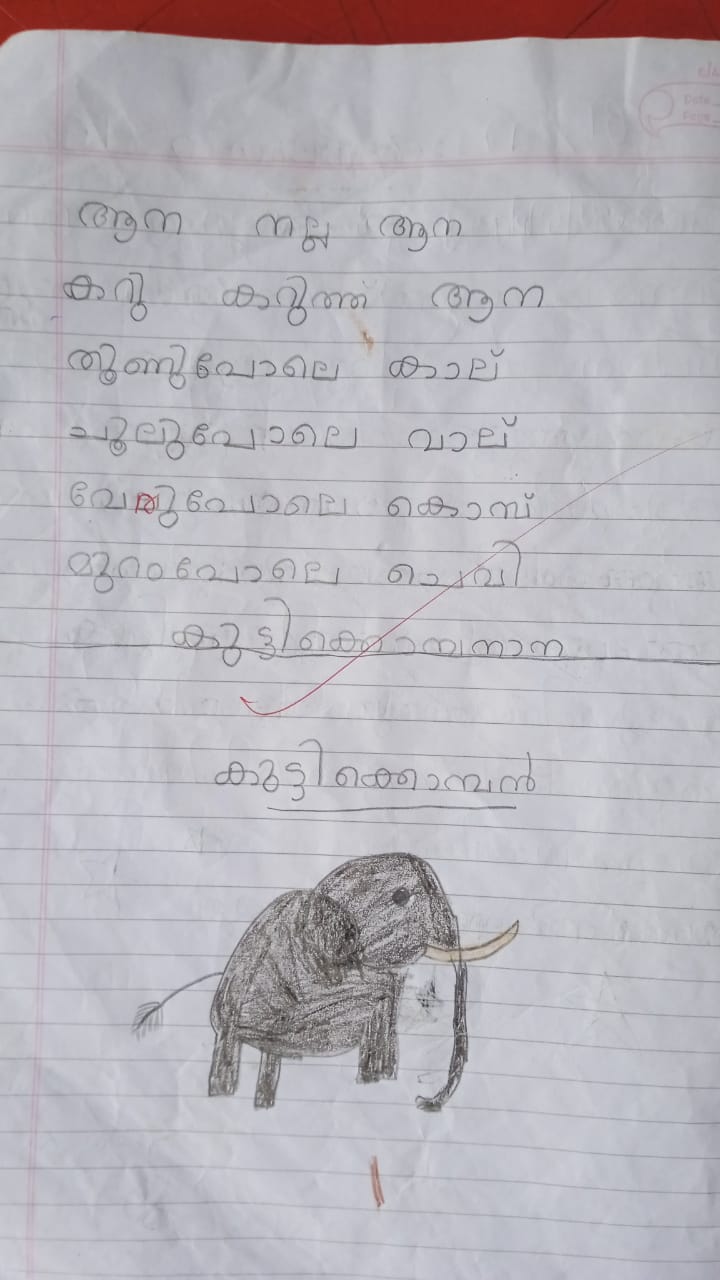 Date
Page
ആന നല്ല ആന
കറു കറുത്ത ആന
തൂണുപോലെ കാല്
ചൂലുപോലെ വാല്
വേരുപോലെ കൊമ്പ്
മുറംപോലെ ചെവി
കുട്ടിക്കൊമ്പനാന
കുട്ടിക്കൊമ്പൻ